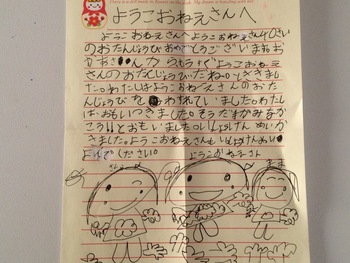 ようこおねえさんへ
ようこおねえさんへようこおねえさん40さい
のおたんじょうびおめでとうございます。お
かあさんからもうすぐようこおねえ
さんのおたんじょうびだね。とききまし
た。わたしはようこおねえさんのおた
んじょうびを われていました。わたし
はおもいつきました。そうだてがみをか
こう!!とおもいました。いっしょけんめいか
きました。ようこおねえさんもいっしょけんめい
よんでください。 ようこおねえさん